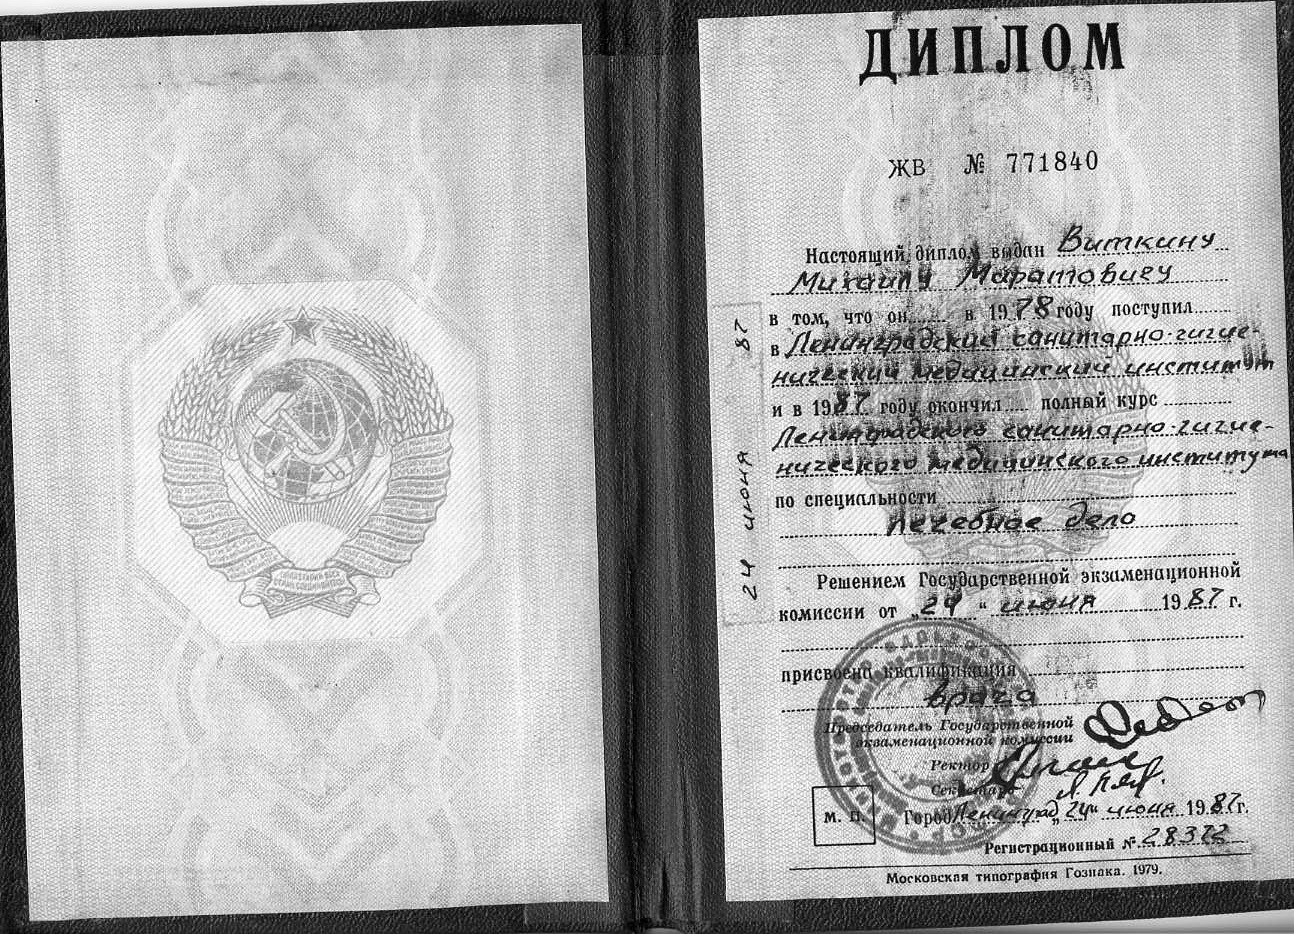 ДИПЛОМ
ЖВ № 771840
Настоящий диплом выдан Виткину
Михаилу Маратовичу
в том, что он в 1978 году поступил
в Ленинградский санитарно-гигие-
нический медицинский институт
и в 1987 году окончил полный курс
Ленинградского санитарно-гигие-
нического медицинского института
по специальности
лечебное дело
Решением Государственной экзаменационной
комиссии от „24 “ июня 1987 г.
присвоена квалификация
врача
Председатель Государственной
экзаменационной комиссии
Ректор
Секретарь
М. П.
Город Ленинград „24“ июня 1987 г.
Регистрационный № 28372
Московская типография Гознака. 1979.
24 июня 87